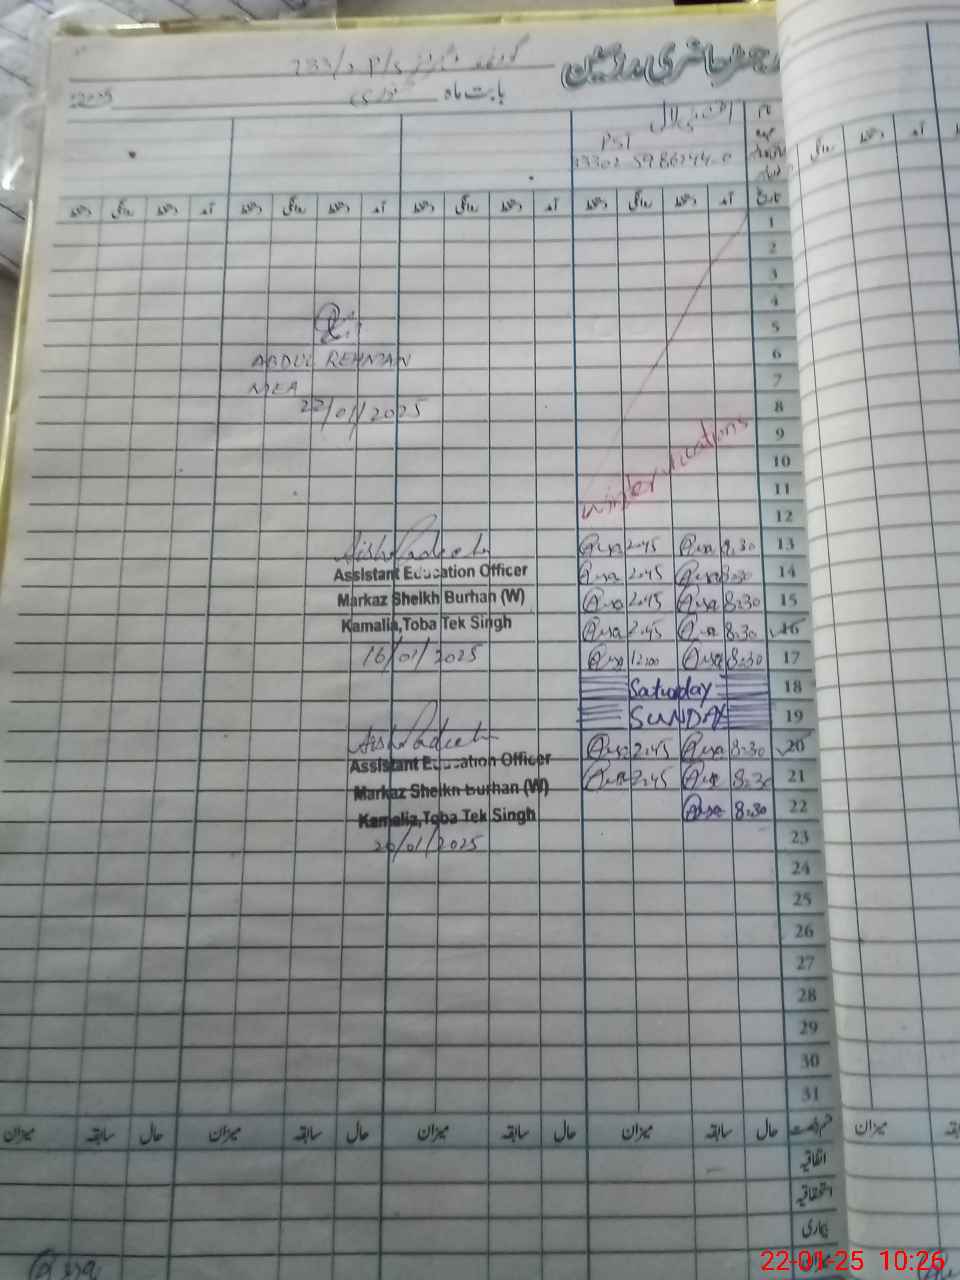 رجسٹر حاضری مدرسین
بابت ماہ جنوری 2025
PST
نام
عہدہ
آمد دستخط روانگی دستخط آمد دستخط روانگی دستخط آمد دستخط روانگی دستخط آمد دستخط روانگی دستخط
تاریخ
1
2
3
4
5
6
ABDUL REHMAN
7
MEA
8
22/01/2025
9
winter vacations
10
11
12
13 8.30 2.45
14 8.30 2.45
Assistant Education Officer
15 8:30 2.45
Markaz Sheikh Burhan (W)
16 8.30 2.45
Kamalia,Toba Tek Singh
17 8:30 12:00
16/01/2025
18 Saturday
19 SUNDAY
20 8:30 2.45
Assistant Education Officer
21 8:30 2.45
Markaz Sheikh Burhan (W)
22 8:30
Kamalia,Toba Tek Singh
23
20/01/2025
24
25
26
27
28
29
30
31
قسم رخصت حال سابقہ میزان حال سابقہ میزان حال سابقہ میزان حال سابقہ میزان
اتفاقیہ
استحقاقیہ
بیماری
میزان
22-01-25 10:26